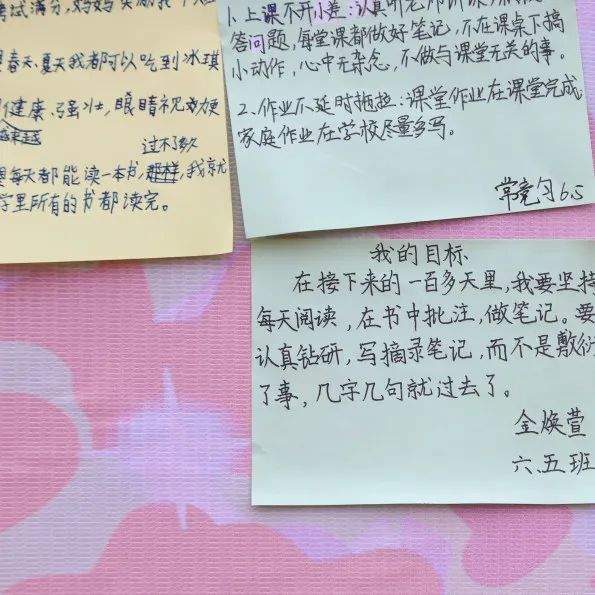 考试满分,妈妈奖励我
春天、夏天我都可以吃到冰琪
健康、强壮,眼睛视力便
越来越
过不了多久
每天都能读一本书,那样,我就
学里所有的书都读完。
1、上课不开小差:认真听老师讲课,
答问题,每堂课都做好笔记,不在课桌下搞
小动作,心中无杂念,不做与课堂无关的事。
2、作业不延时拖拉:课堂作业在课堂完成
家庭作业在学校尽量多写。
常竞匀6.5
我的目标
在接下来的一百多天里,我要坚持
每天阅读,在书中批注,做笔记。要
认真钻研,写摘录笔记,而不是敷衍
了事,几字几句就过去了。
金焕萱
六、五班